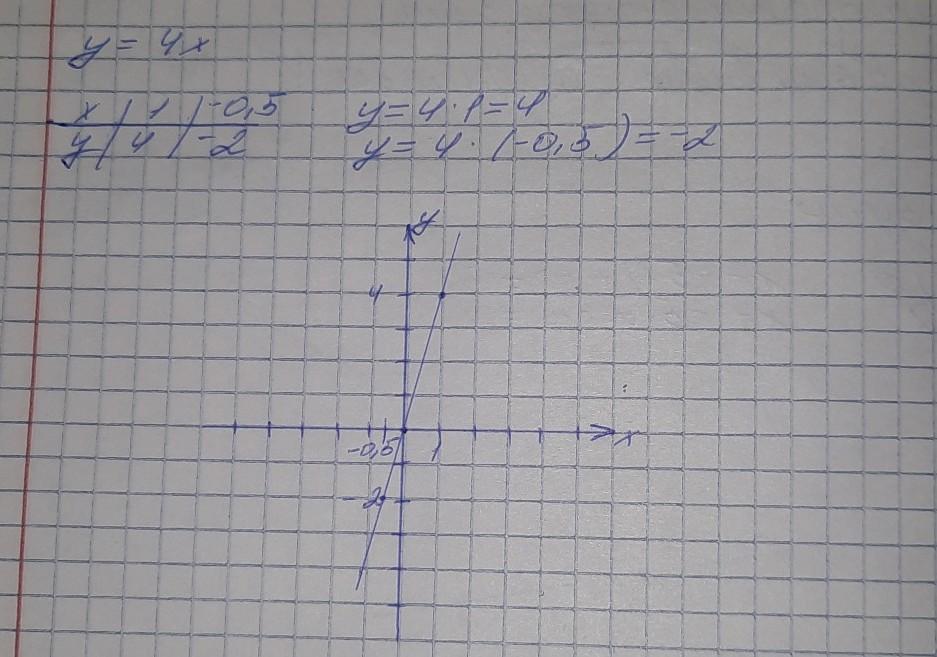 y = 4x
x | 1 | -0,5
y | 4 | -2
y = 4 · 1 = 4
y = 4 · (-0,5) = -2
y
4
-0,5 1 x
-2